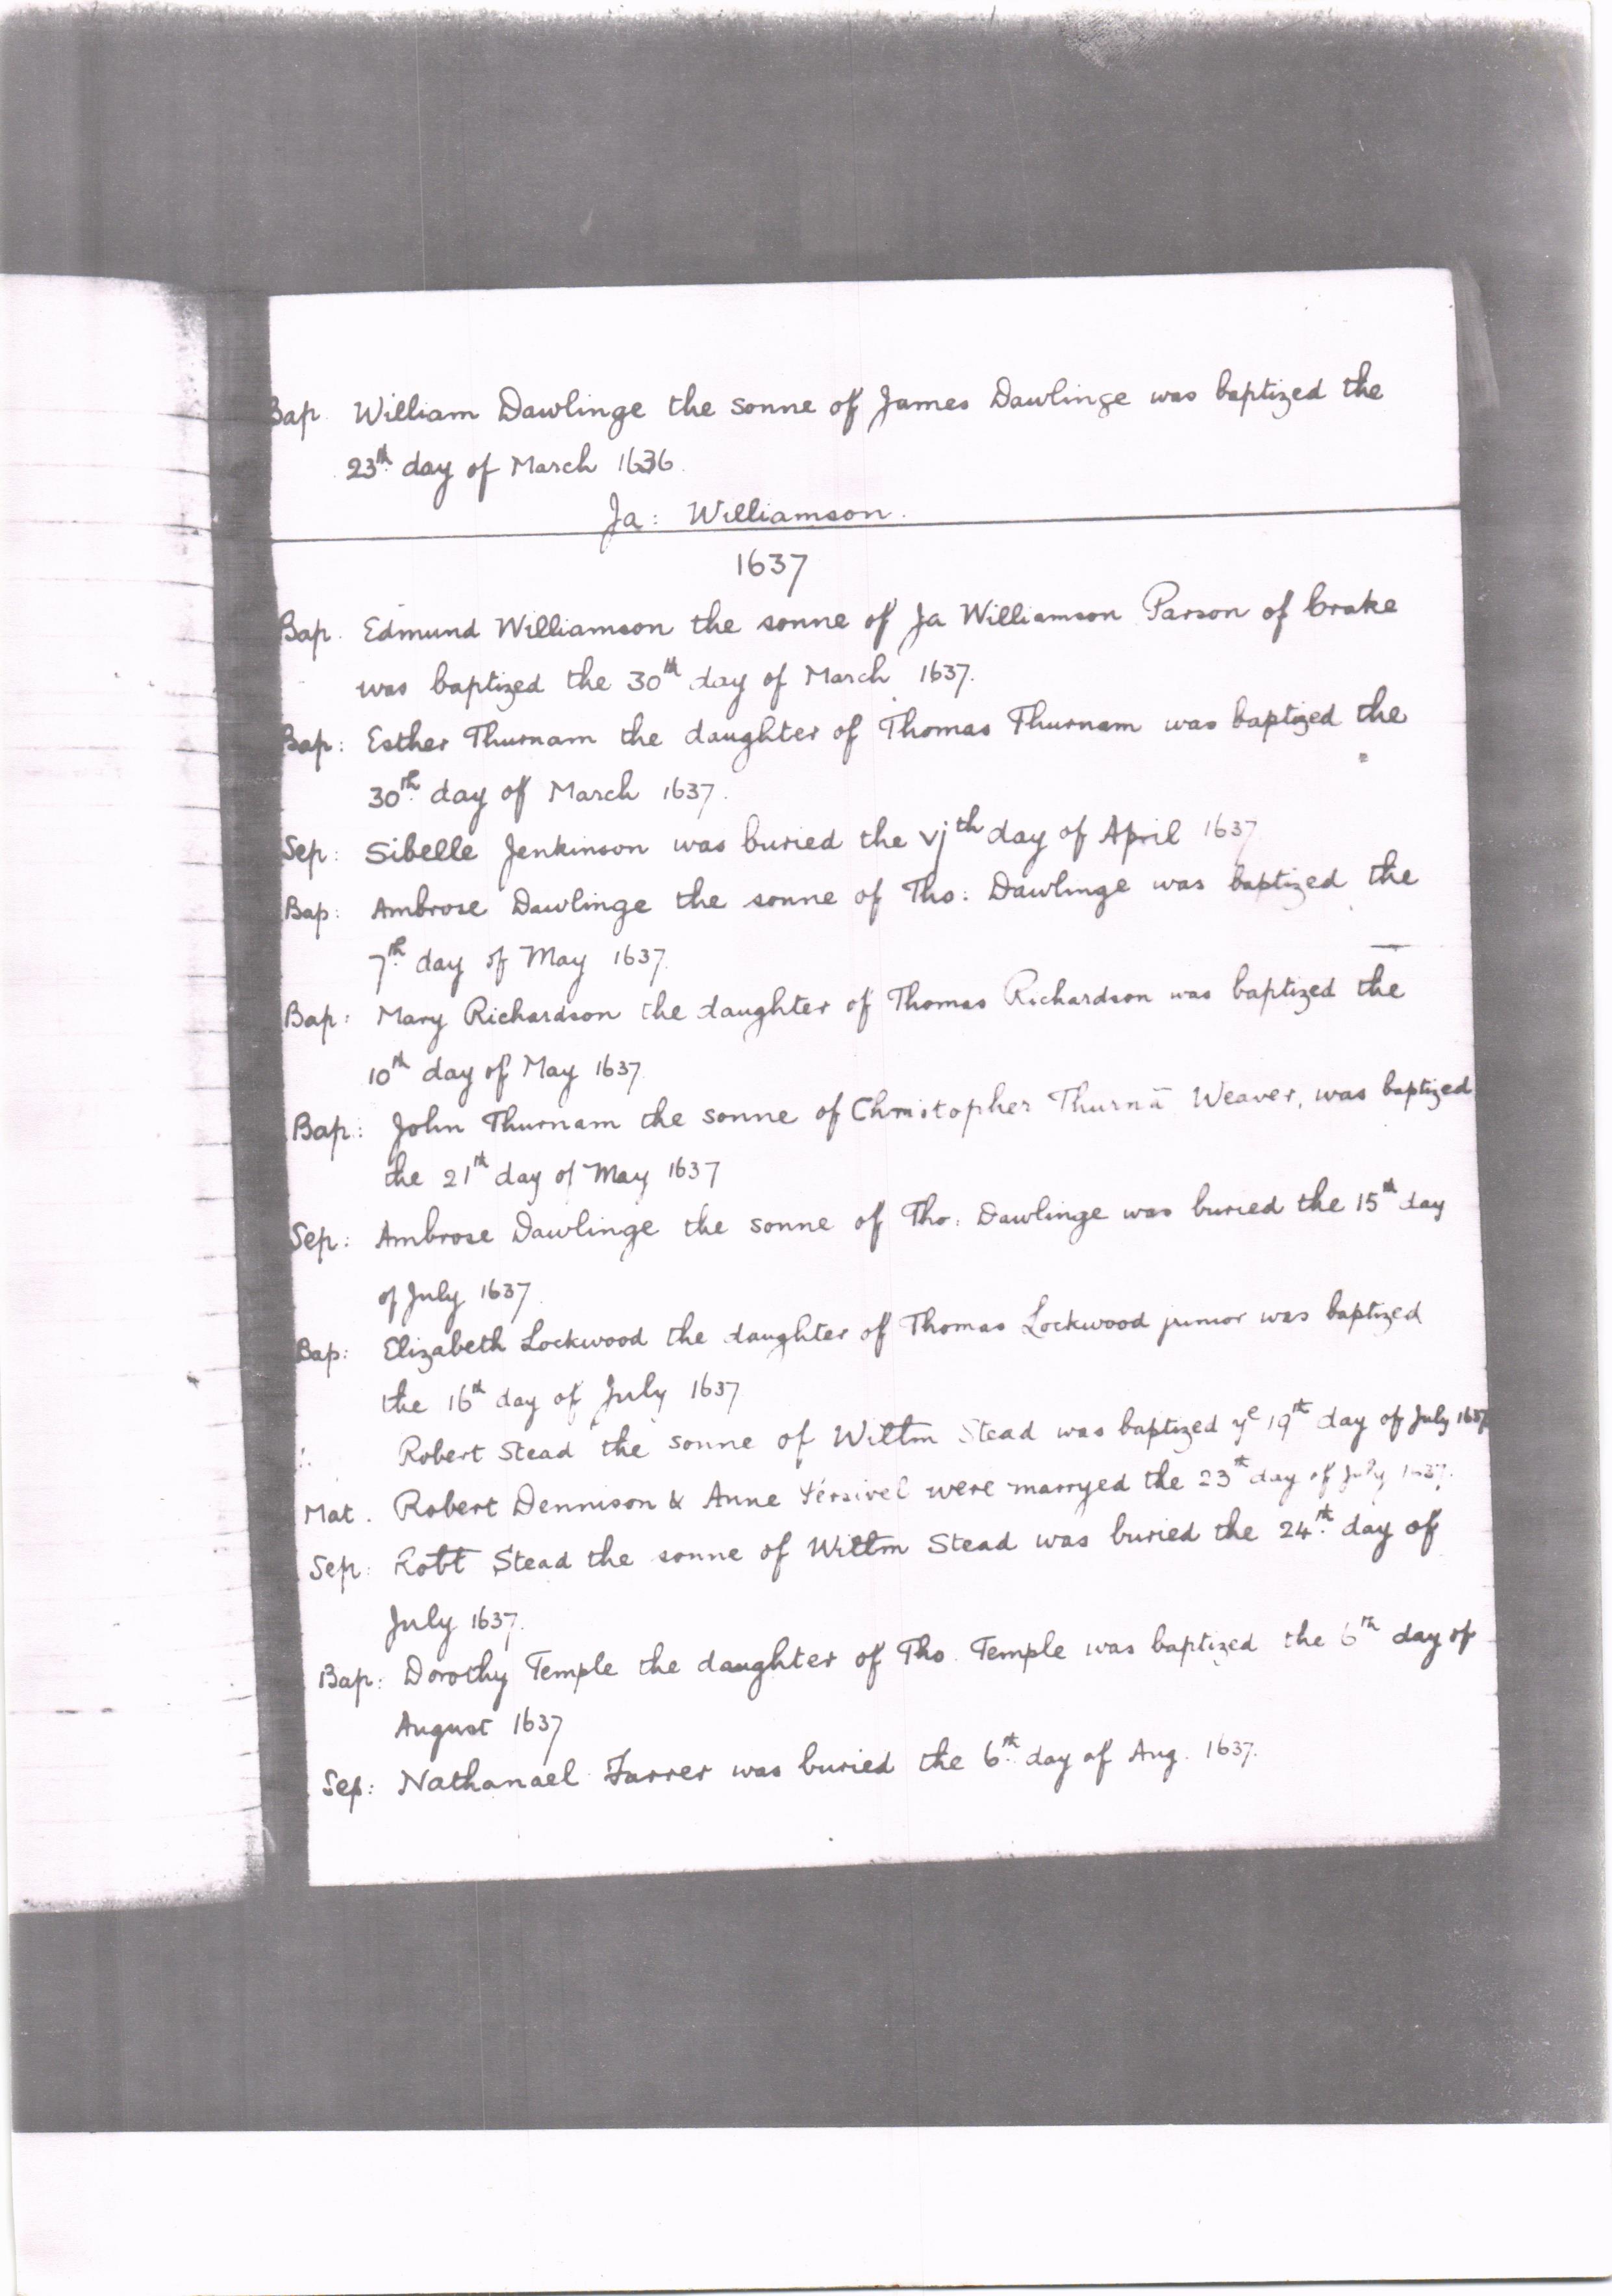 Bap. William Dawlinge the sonne of James Dawlinge was baptized the
23th day of March 1636.
Ja: Williamson.
1637
Bap. Edmund Williamson the sonne of Ja Williamson Parson of Crake
was baptized the 30th day of March 1637.
Bap: Esther Thurnam the daughter of Thomas Thurnam was baptized the
30th day of March 1637.
Sep: Sibelle Jenkinson was buried the vjth day of April 1637
Bap: Ambrose Dawlinge the sonne of Tho: Dawlinge was baptized the
7th day of May 1637.
Bap: Mary Richardson the daughter of Thomas Richardson was baptized the
10th day of May 1637
Bap: John Thurnam the sonne of Christopher Thurnā Weaver, was baptized
the 21th day of May 1637
Sep: Ambrose Dawlinge the sonne of Tho: Dawlinge was buried the 15th day
of July 1637.
Bap: Elizabeth Lockwood the daughter of Thomas Lockwood junior was baptized
the 16th day of July 1637
Robert Stead the sonne of Willm Stead was baptized ye 19th day of July 1637
Mat. Robert Dennison & Anne were marryed the 23th day of July 1637.
Sep: Robt Stead the sonne of Willm Stead was buried the 24th day of
July 1637.
Bap: Dorothy Temple the daughter of Tho. Temple was baptized the 6th day of
August 1637
Sep: Nathanael Farrer was buried the 6th day of Aug. 1637.